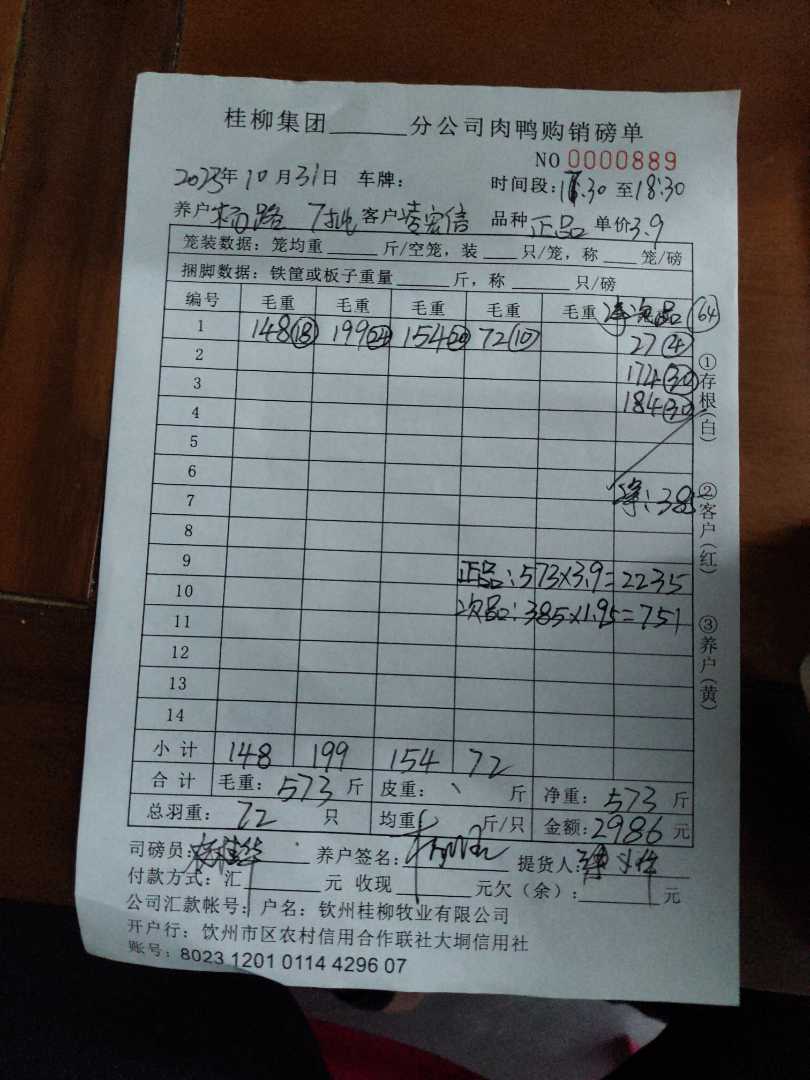 桂柳集团______分公司肉鸭购销磅单
NO 0000889
2023年10月31日 车牌： 时间段：17.30 至18:30
养户 杨路 7批 客户 凌宏信 品种 正品 单价3.9
笼装数据：笼均重______斤/空笼，装____只/笼，称____笼/磅
捆脚数据：铁筐或板子重量______斤，称______只/磅
编号 毛重 毛重 毛重 毛重 毛重 净次品 (64)
1 148(18) 199(24) 154(20) 72(10) 27(4)
2 174(30)
3 184(30)
4
5
6
7 净：385
8
9 正品：573×3.9=2235
10 次品：385×1.95=751
11
12
13
14
小计 148 199 154 72
合计 毛重：573斤 皮重：、斤 净重：573斤
总羽重：72 只 均重 斤/只 金额：2986元
司磅员： 养户签名： 提货人：
付款方式：汇______元 收现______元欠（余）：______元
公司汇款帐号： 户名：钦州桂柳牧业有限公司
开户行：饮州市区农村信用合作联社大垌信用社
账号：8023 1201 0114 4296 07
①存根（白）
②客户（红）
③养户（黄）